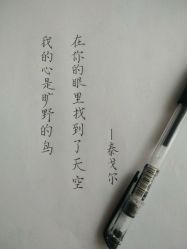 我的心是旷野的鸟
在你的眼里找到了天空
—泰戈尔